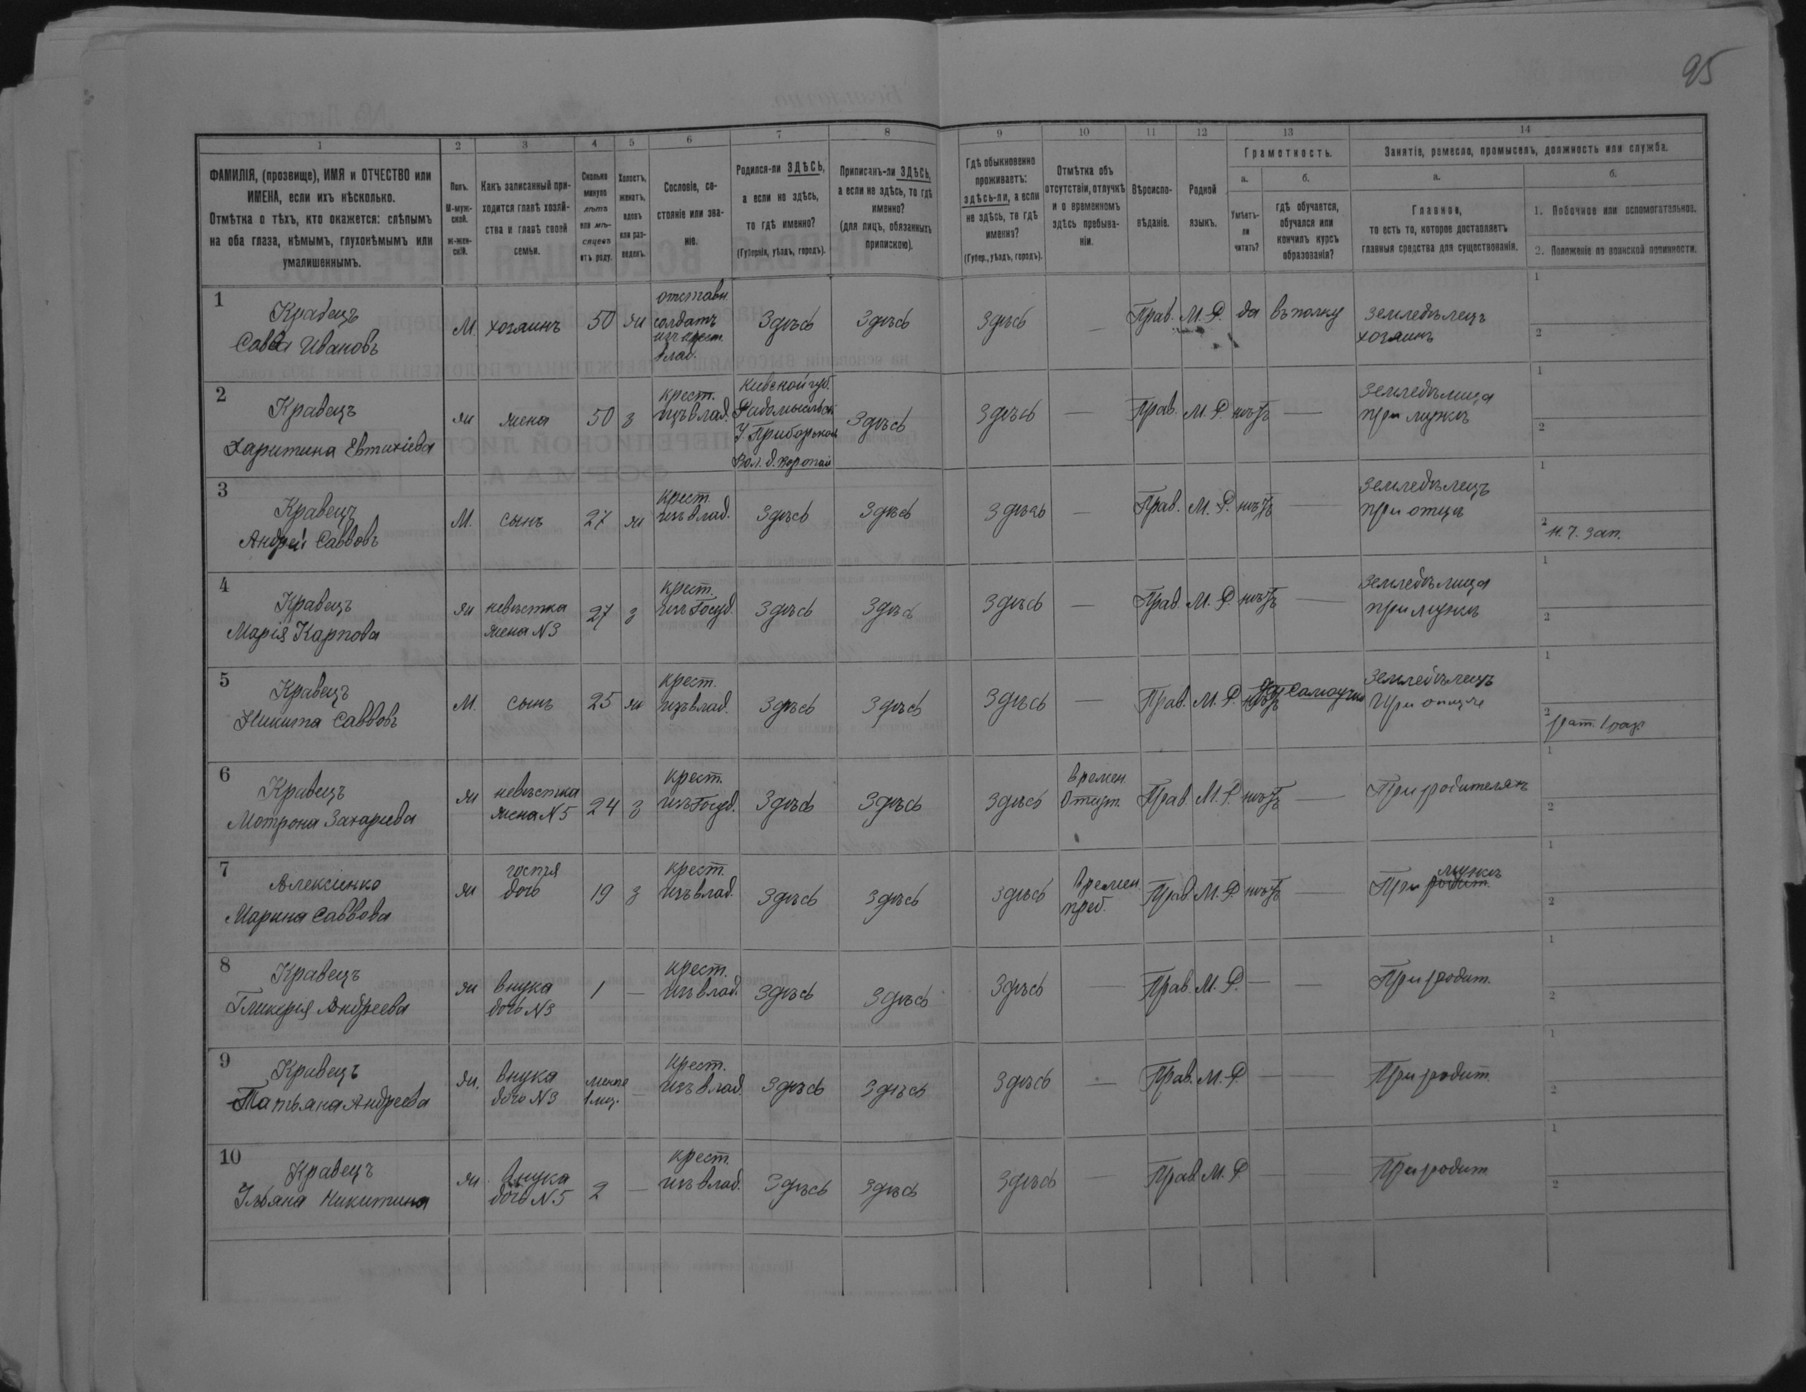 95
1 2 3 4 5 6 7 8 9 10 11 12 13 14
ФАМИЛІЯ, (прозвище), ИМЯ и ОТЧЕСТВО или
ИМЕНА, если ихъ нѣсколько.
Отмѣтка о тѣхъ, кто окажется: слѣпымъ
на оба глаза, нѣмымъ, глухонѣмымъ или
умалишеннымъ.
Полъ.
М-муж-
ской.
Ж-жен-
скій.
Какъ записанный при-
ходится главѣ хозяй-
ства и главѣ своей
семьи.
Сколько
минуло
лѣтъ
или мѣ-
сяцевъ
отъ роду.
Холостъ,
женатъ,
вдовъ
или раз-
веденъ.
Сословіе, со-
стояніе или зва-
ніе.
Родился-ли ЗДѢСЬ,
а если не здѣсь,
то гдѣ именно?
(Губернія, уѣздъ, городъ).
Приписанъ-ли ЗДѢСЬ,
а если не здѣсь, то гдѣ
именно?
(для лицъ, обязанныхъ
припискою).
Гдѣ обыкновенно
проживаетъ:
здѣсь-ли, а если
не здѣсь, то гдѣ
именно?
(Губер., уѣздъ, городъ).
Отмѣтка объ
отсутствіи, отлучкѣ
и о временномъ
здѣсь пребыва-
ніи.
Вѣроиспо-
вѣданіе.
Родной
языкъ.
Грамотность.
а.
Умѣетъ-
ли
читать?
б.
гдѣ обучается,
обучался или
кончилъ курсъ
образованія?
Занятіе, ремесло, промыселъ, должность или служба.
а.
Главное,
то есть то, которое доставляетъ
главныя средства для существованія.
б.
1. Побочное или вспомогательное.
2. Положеніе по воинской повинности.
1 Кравецъ
Савва Ивановъ
М хозяинъ 50 ж
отставн
солдатъ
изъ крест.
влад.
Здѣсь Здѣсь Здѣсь — Прав. М. Р. да въ полку
земледѣлецъ
хозяинъ
1
2
2 Кравецъ
Харитина Евтихіева
ж жена 50 з
крест.
изъ влад.
Кіевской губ.
Радомысльск
У. Приборской
Вол. д.
Здѣсь Здѣсь — Прав. М. Р. нѣтъ —
земледѣлица
при мужѣ
1
2
3 Кравецъ
Андрей Саввовъ
М. сынъ 27 ж
крест.
изъ влад.
Здѣсь Здѣсь Здѣсь — Прав. М. Р. нѣтъ —
земледѣлецъ
при отцѣ
1
2 н. ч. зап.
4 Кравецъ
Марія Карпова
ж невѣстка
жена N3
27 з
крест.
изъ Госуд.
Здѣсь Здѣсь Здѣсь — Прав. М. Р. нѣтъ —
земледѣлица
при мужѣ
1
2
5 Кравецъ
Никита Саввовъ
М. сынъ 25 ж
крест.
изъ влад.
Здѣсь Здѣсь Здѣсь — Прав. М. Р. да самоучка
земледѣлецъ
При отцѣ
1
2 рат. 1 раз.
6 Кравецъ
Мотрона Захаріева
ж невѣстка
жена N5
24 з
крест.
изъ Госуд.
Здѣсь Здѣсь Здѣсь
времен.
Отсут.
Прав. М. Р. нѣтъ —
При родителяхъ
1
2
7 Алексинко
Марина Саввова
ж гостья
дочь
19 з
крест.
изъ влад.
Здѣсь Здѣсь Здѣсь
Времен
преб.
Прав. М. Р. нѣтъ —
При мужѣ
родит.
1
2
8 Кравецъ
Гликерія Андреева
ж внука
дочь N3
1 —
крест.
изъ влад.
Здѣсь Здѣсь Здѣсь — Прав. М. Р. — —
При родит.
1
2
9 Кравецъ
Татьяна Андреева
ж. внука
дочь N3
менѣе
1 мѣс.
—
крест.
изъ влад.
Здѣсь Здѣсь Здѣсь — Прав. М. Р. — —
При родит.
1
2
10 Кравецъ
Ульяна Никитина
ж. Внука
дочь N5
2 —
крест.
изъ влад.
Здѣсь Здѣсь Здѣсь — Прав. М. Р. — —
При родит
1
2